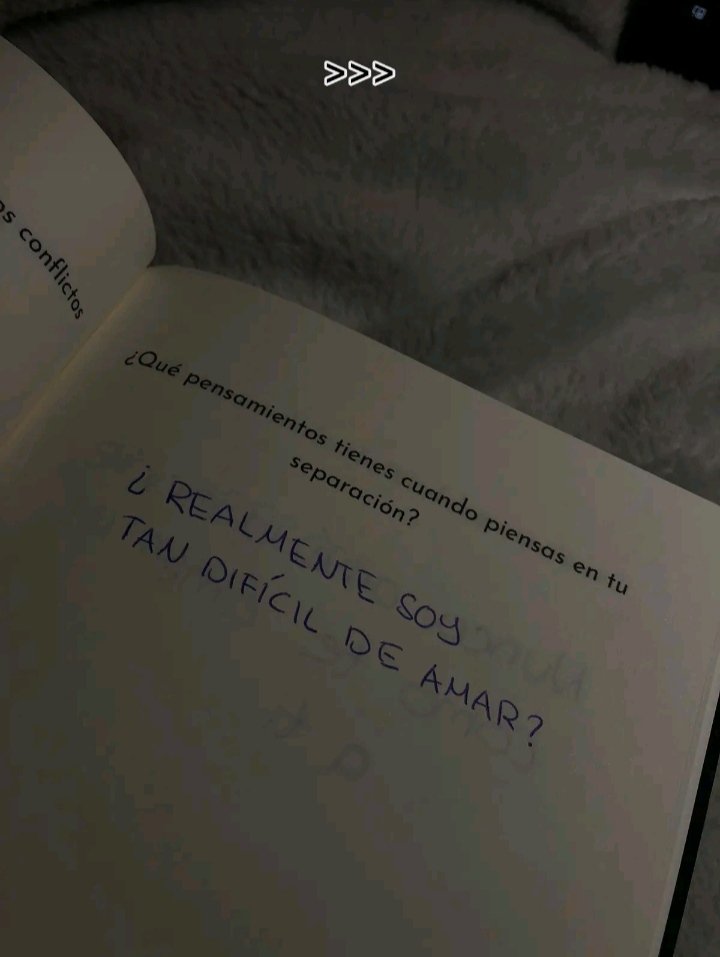 >>>
os conflictos
¿Qué pensamientos tienes cuando piensas en tu
separación?
¿REALMENTE SOY
TAN DIFÍCIL DE AMAR?